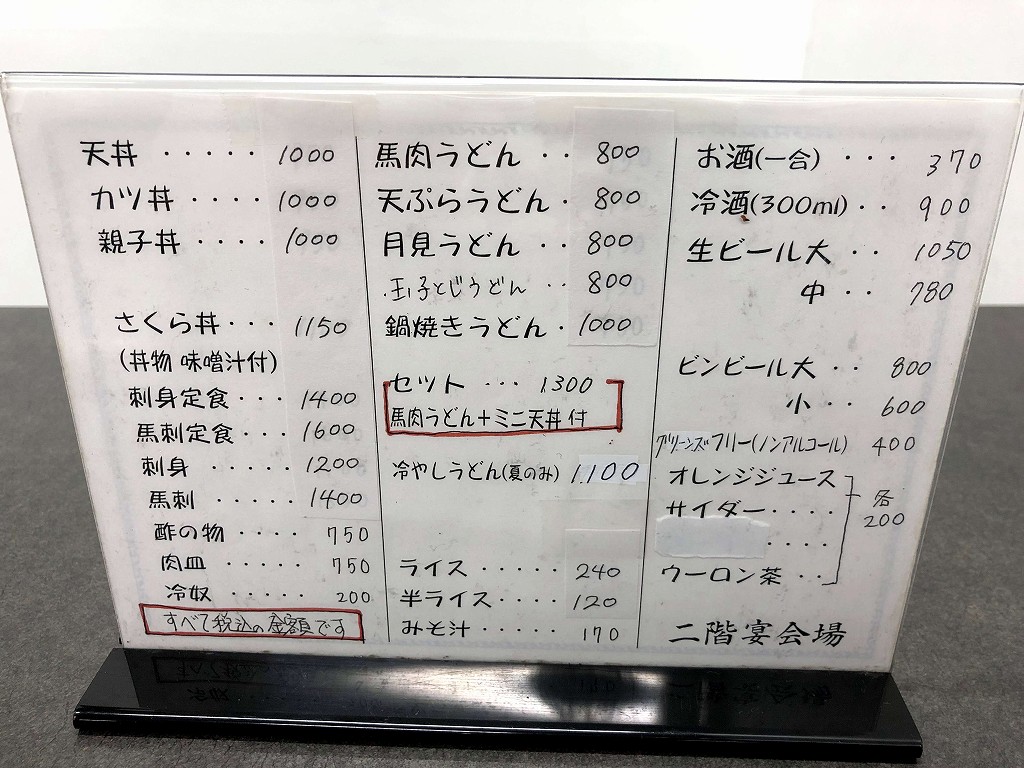 天丼 ····· 1000
カツ丼 ···· 1000
親子丼 ···· 1000
さくら丼··· 1150
(丼物 味噌汁付)
刺身定食··· 1400
馬刺定食··· 1600
刺身 ····· 1200
馬刺 ····· 1400
酢の物 ···· 750
肉皿 ····· 750
冷奴 ····· 200
すべて税込の金額です
馬肉うどん ·· 800
天ぷらうどん· 800
月見うどん ·· 800
玉子とじうどん ·· 800
鍋焼きうどん· 1000
セット ··· 1300
馬肉うどん+ミニ天丼付
冷やしうどん(夏のみ) 1,100
ライス ····· 240
半ライス···· 120
みそ汁 ····· 170
お酒(一合) ··· 370
冷酒(300ml)·· 900
生ビール大 ·· 1050
中 ·· 780
ビンビール大 ·· 800
小 ·· 600
グリーンズフリー(ノンアルコール) 400
オレンジジュース
サイダー····
各200
····
ウーロン茶 ··
二階宴会場